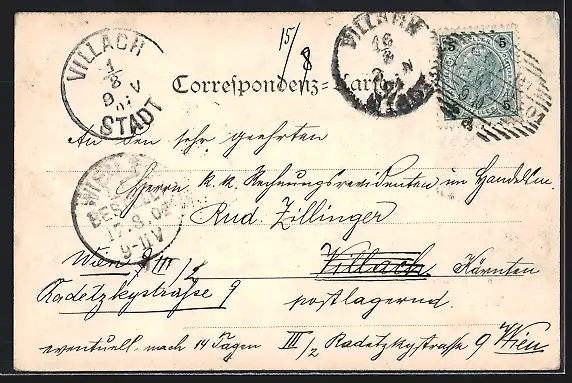 VILLACH
1/8
9 V
STADT
15/8
VILLACH
16
8
5 5
5 5
Correspondenz-Karte
An den sehr geehrten
Herrn k. k. Rechnungsrevidenten im Handelsm.
WIEN
BESTELLT
17.8.02
9-11V
Rud. Zillinger
Villach Kärnten
Wien 9/III/2
Radetzkystraße 9
postlagernd.
eventuell. nach 14 Tagen III/2 Radetzkystraße 9 Wien